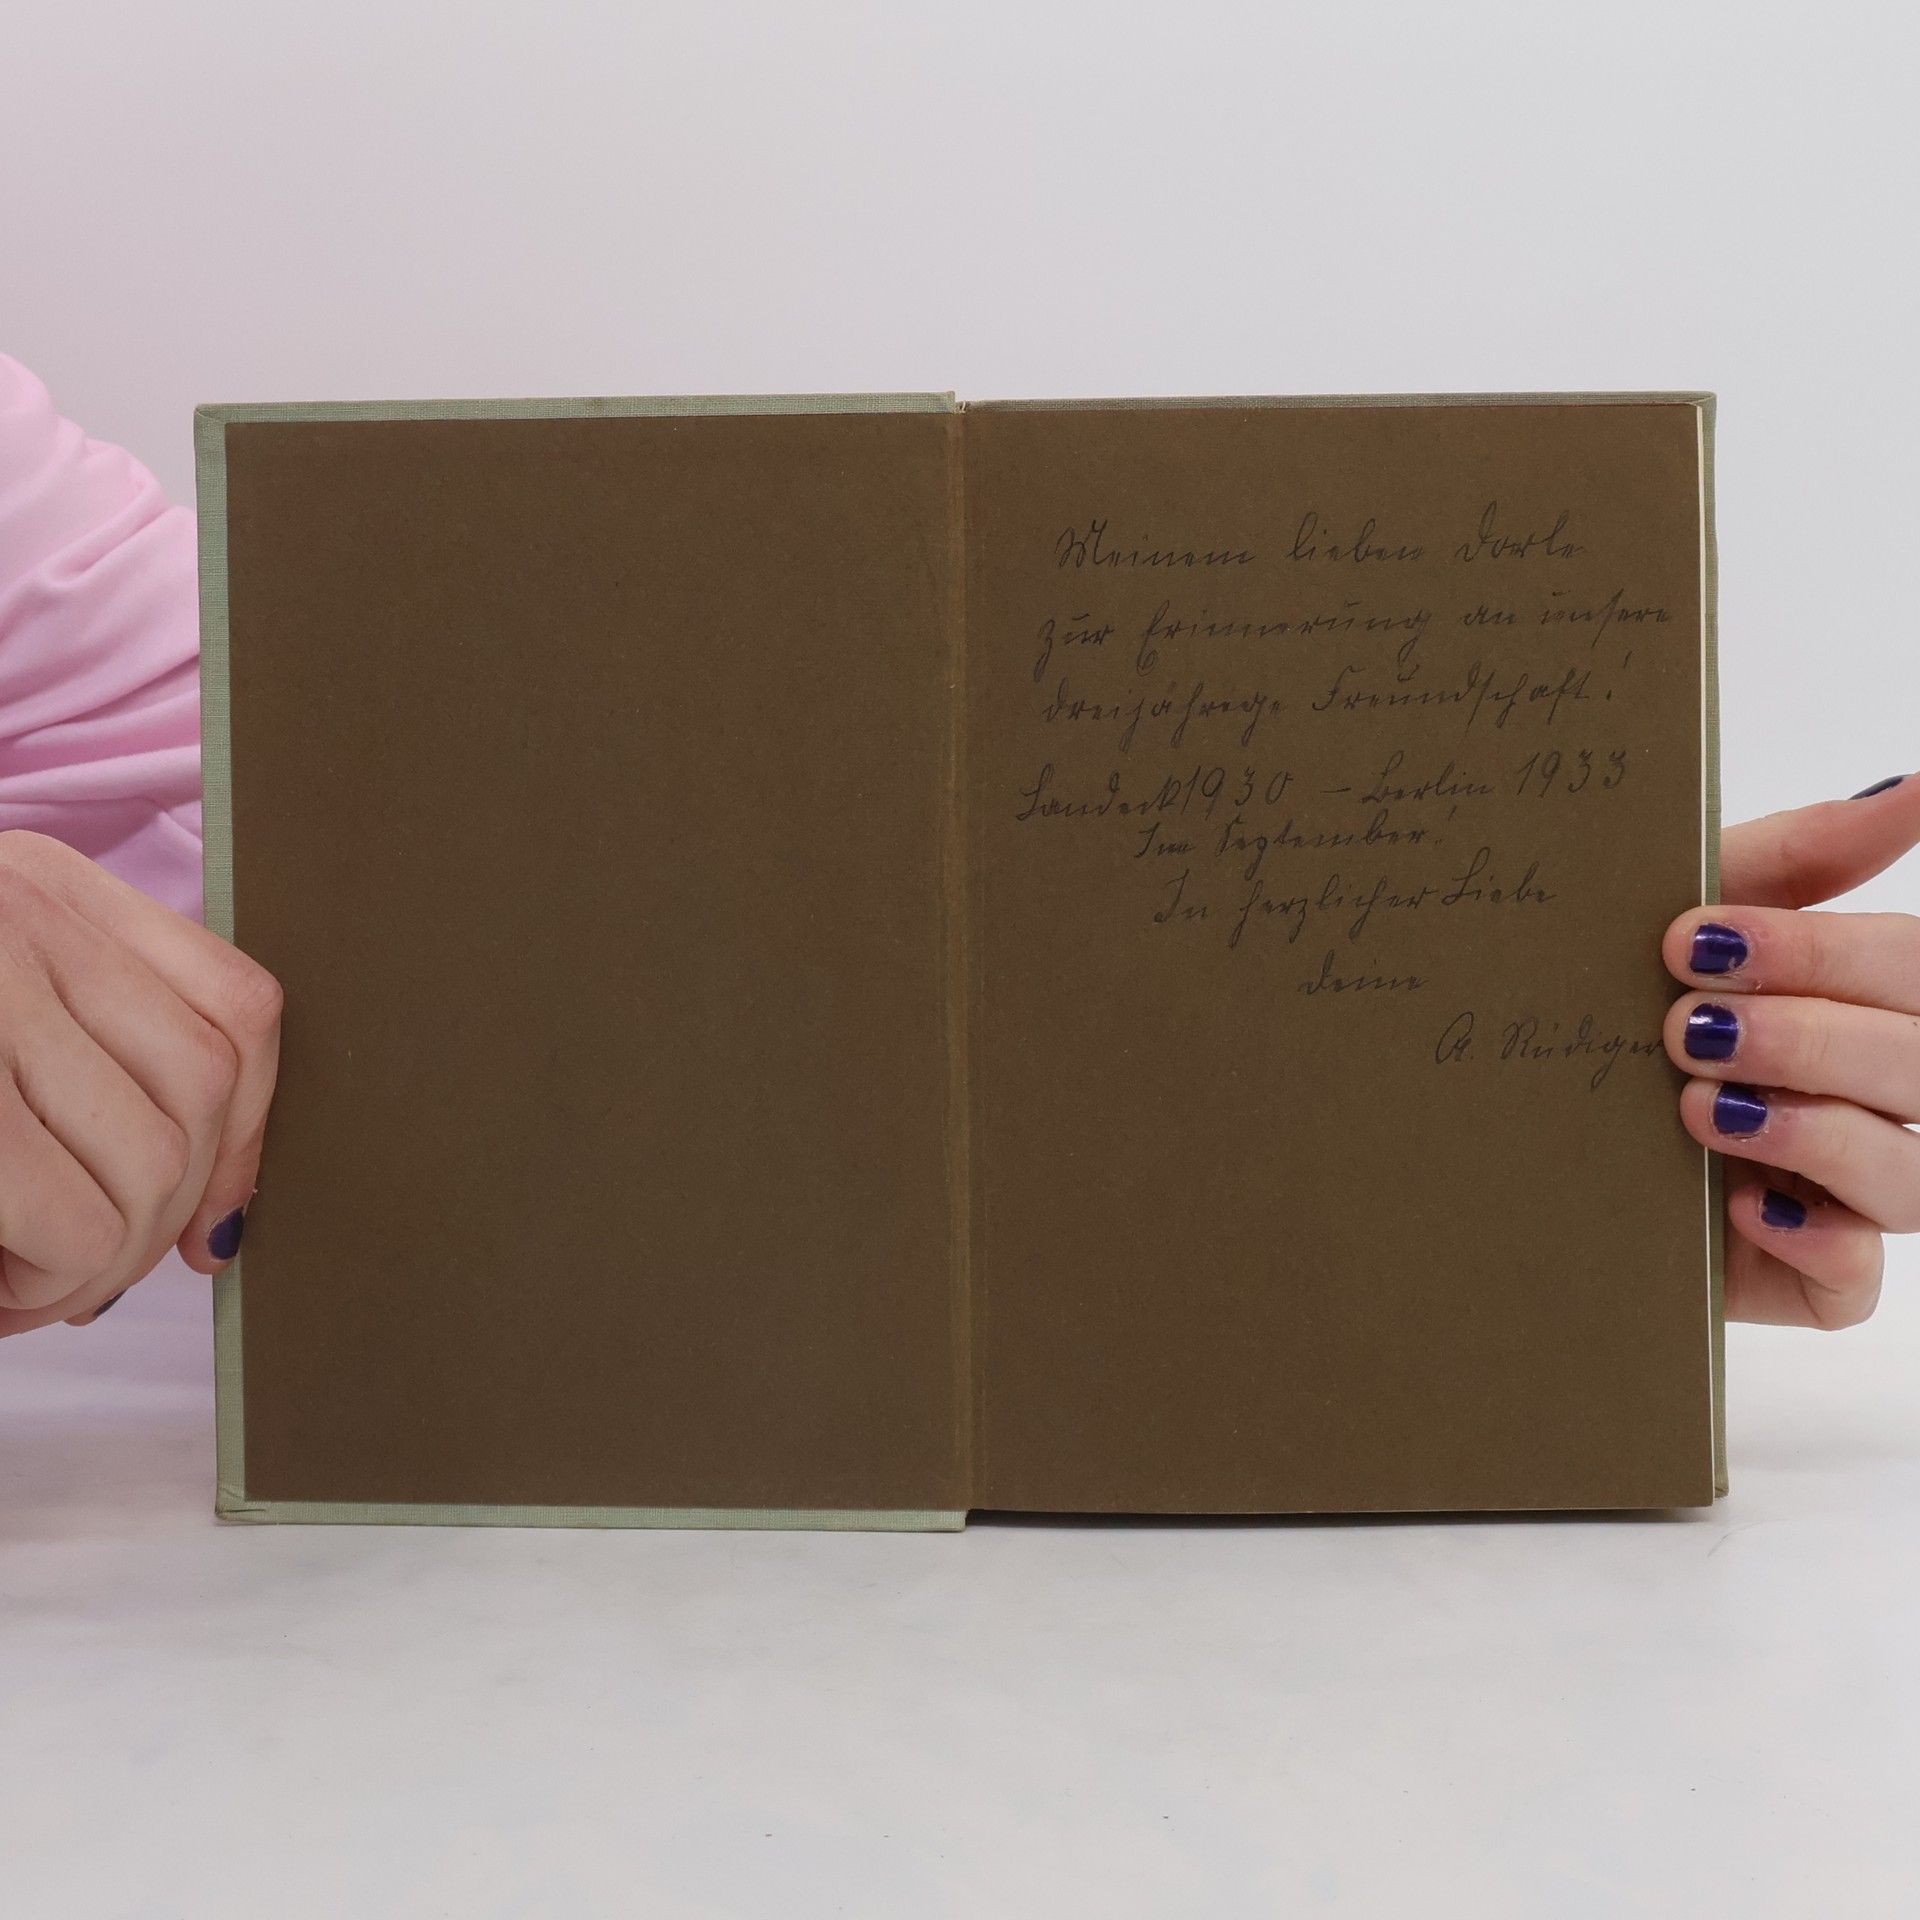 Meinem lieben Dorle
zur Erinnerung an unsere
dreijährige Freundschaft!
Landeck 1930 – Berlin 1933
Im September!
In herzlicher Liebe
Deine
A. Rüdiger